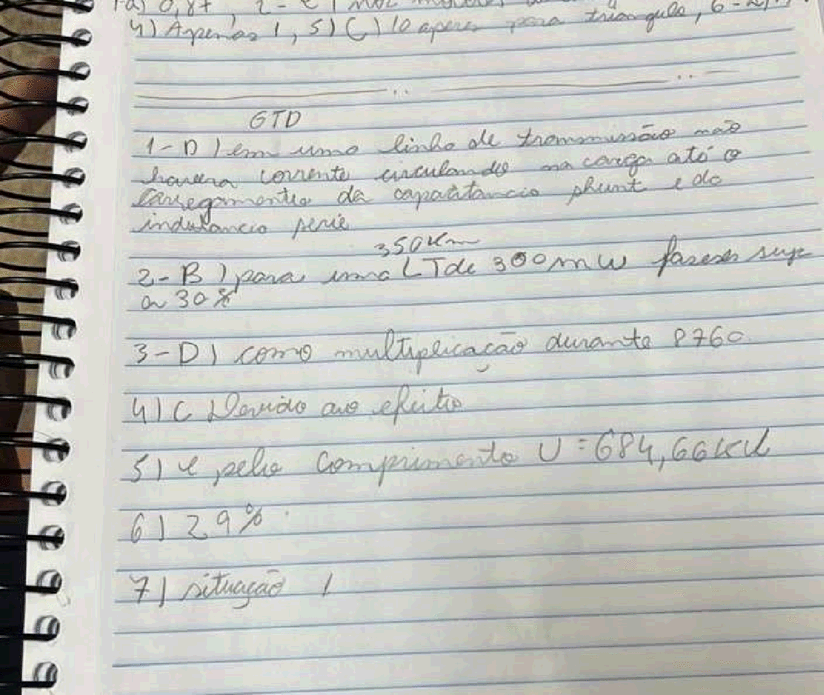 4) Apenas 1, 5) C) 10 para triangulo, 6-
GTD
1-D) em uma linha de transmissão não
havera corrente circulando na carga ató o
carregamento da capatitancia shunt e do
indutancia serie
350Km
2-B) para uma LT de 300mW fasores sup
a 30%
3-D) como multiplicação durante 8760
4) C Devido ao efeito
5) e pelo comprimento U=684,66kV
6) 29%
7) situação 1